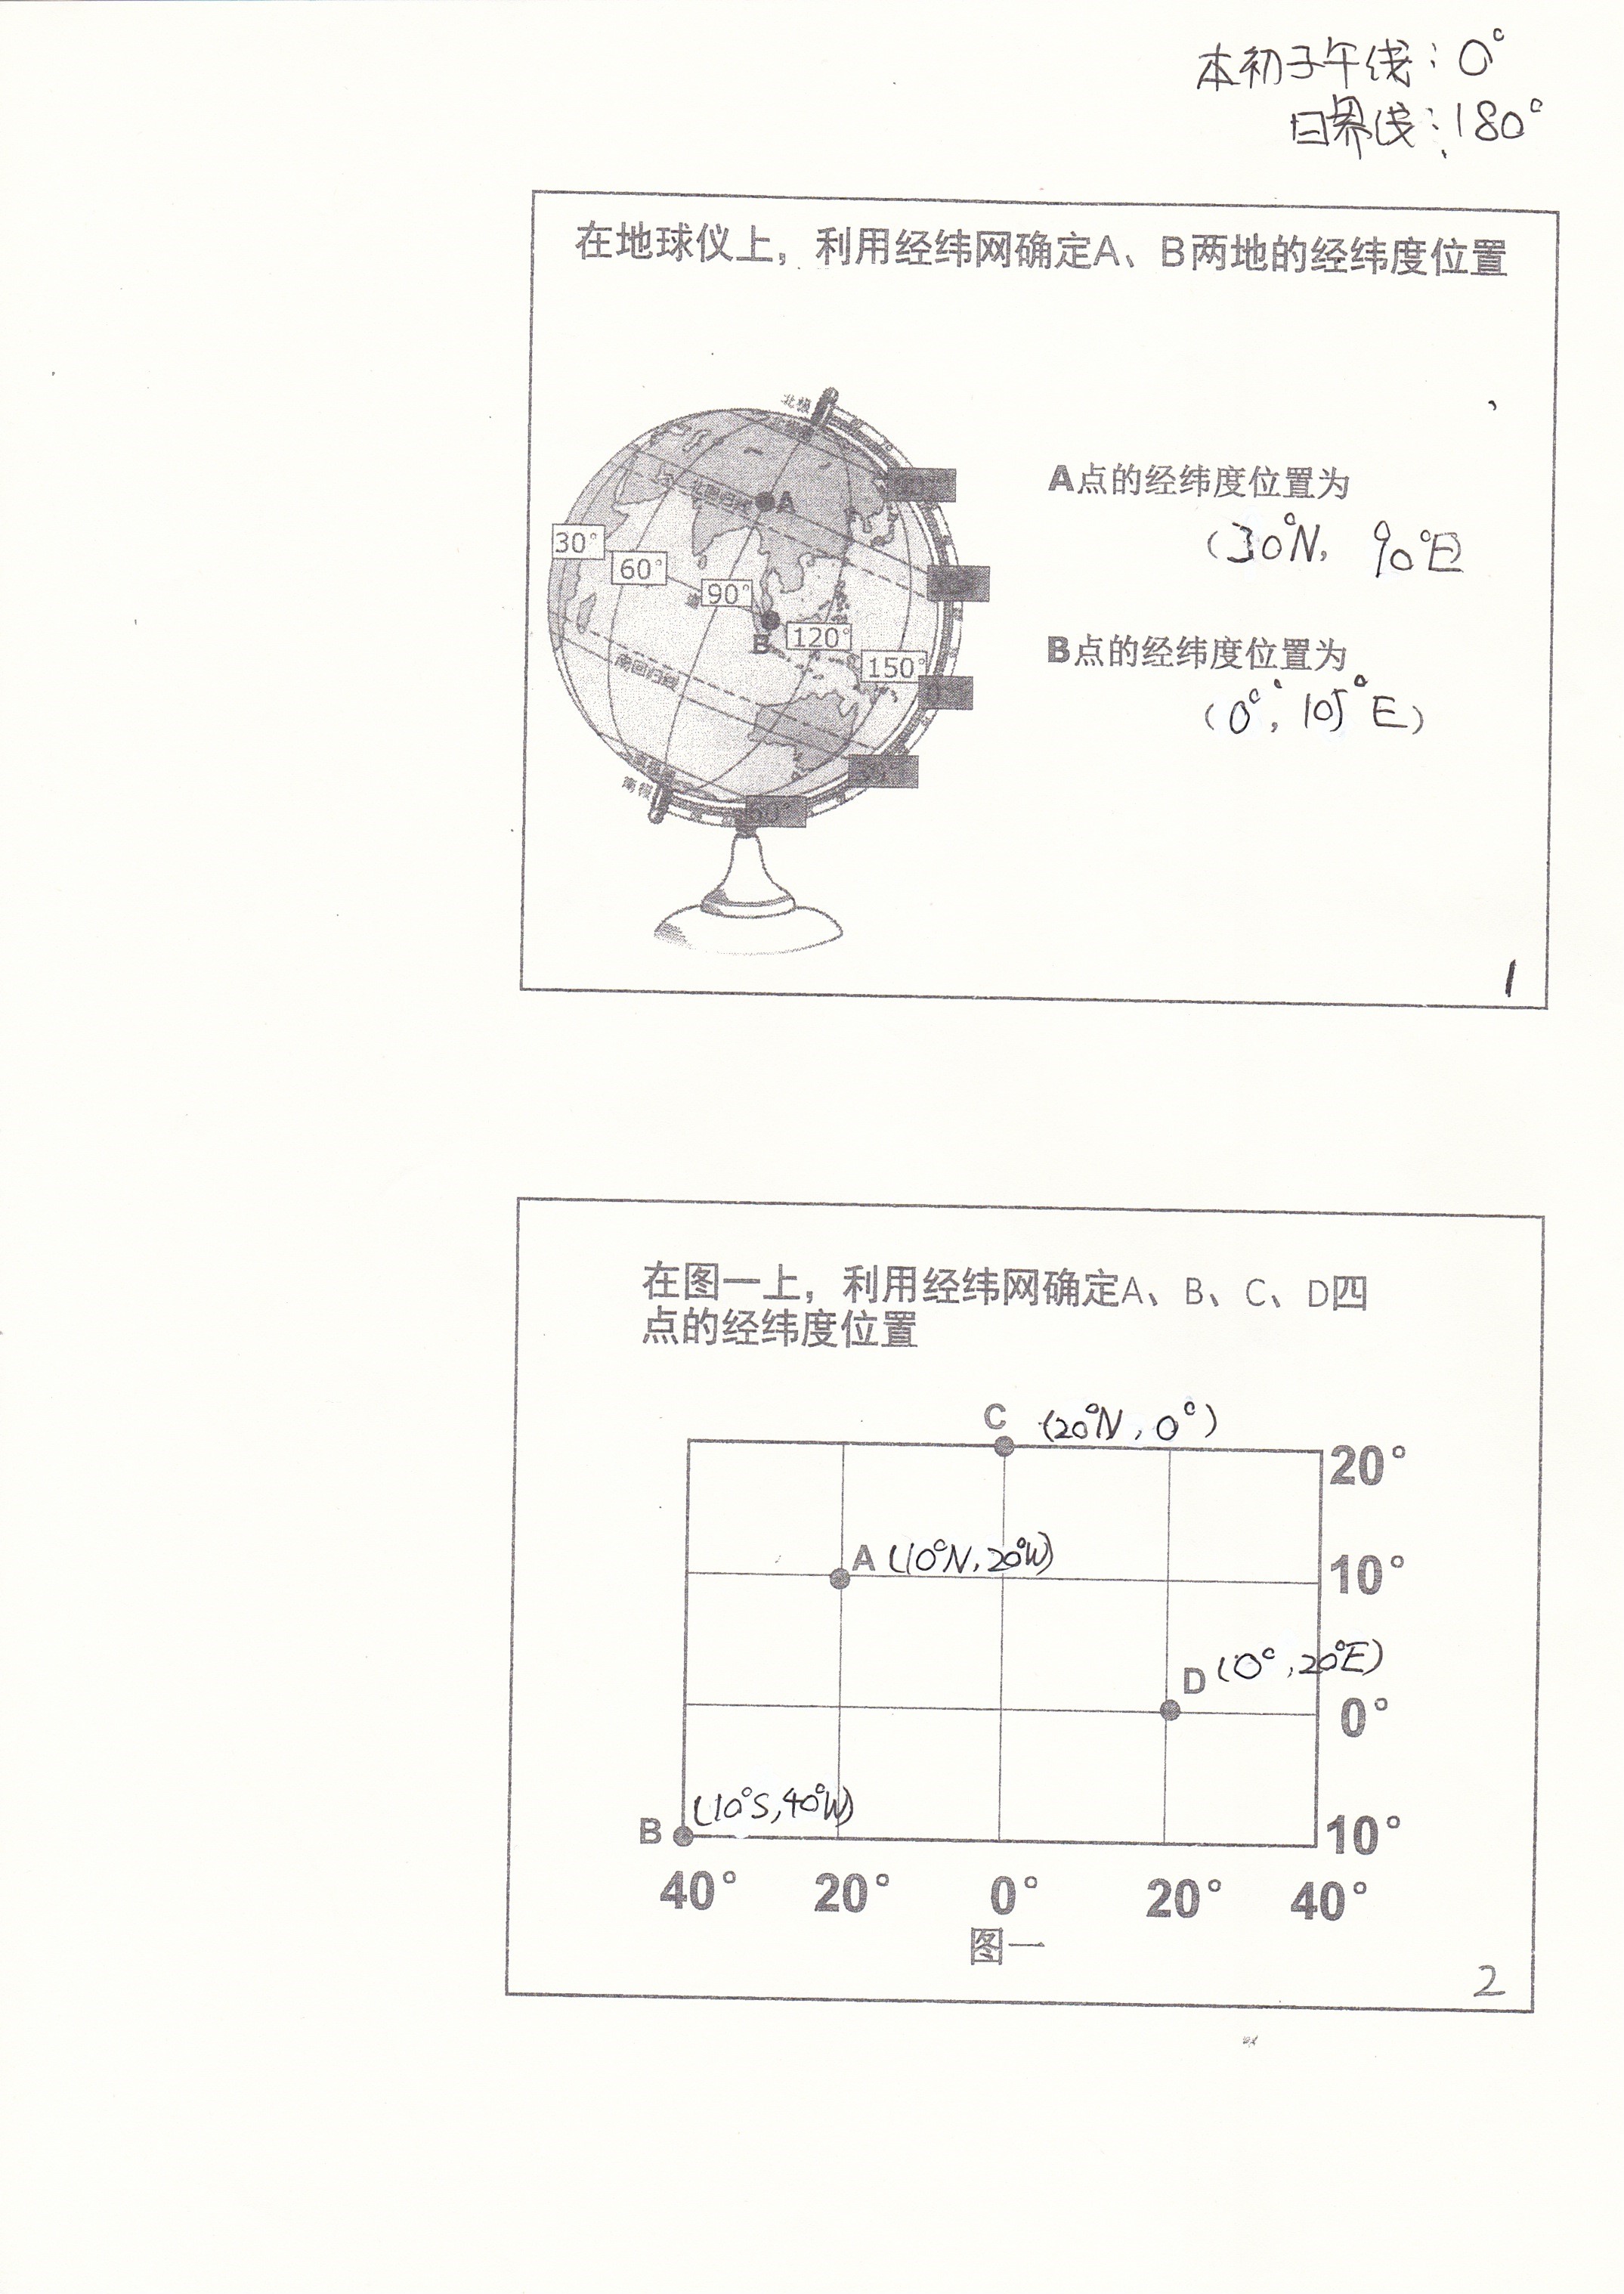 本初子午线：0°
日界线：180°
在地球仪上，利用经纬网确定A、B两地的经纬度位置
北极
北回归线
A
30°
60°
90°
B
120°
150°
南回归线
南极
60°
A点的经纬度位置为
(30°N, 90°E)
B点的经纬度位置为
(0°, 105°E)
1
在图一上，利用经纬网确定A、B、C、D四
点的经纬度位置
C (20°N, 0°)
20°
A (10°N, 20°W)
10°
D (0°, 20°E)
0°
B (10°S, 40°W)
10°
40° 20° 0° 20° 40°
图一
2